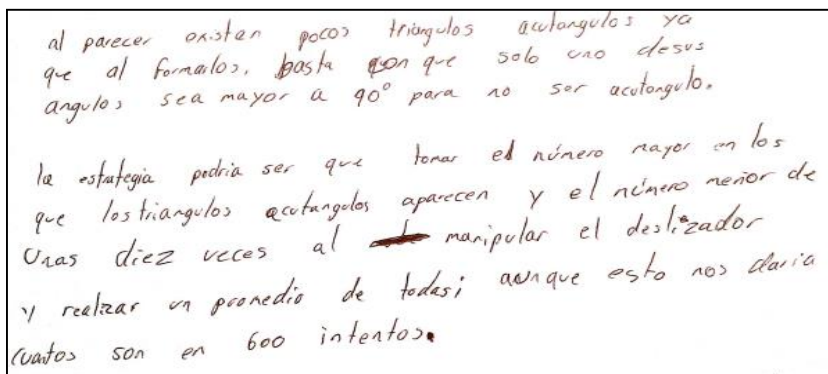 al parecer existen pocos triángulos acutangulos ya
que al formarlos, basta con que solo uno desus
angulos sea mayor a 90° para no ser acutangulo.
la estrategia podria ser que tomar el número mayor en los
que los triangulos acutangulos aparecen y el número menor de
Unas diez veces al manipular el deslizador
y realizar un promedio de todas; aunque esto nos daria
cuantos son en 600 intentos.